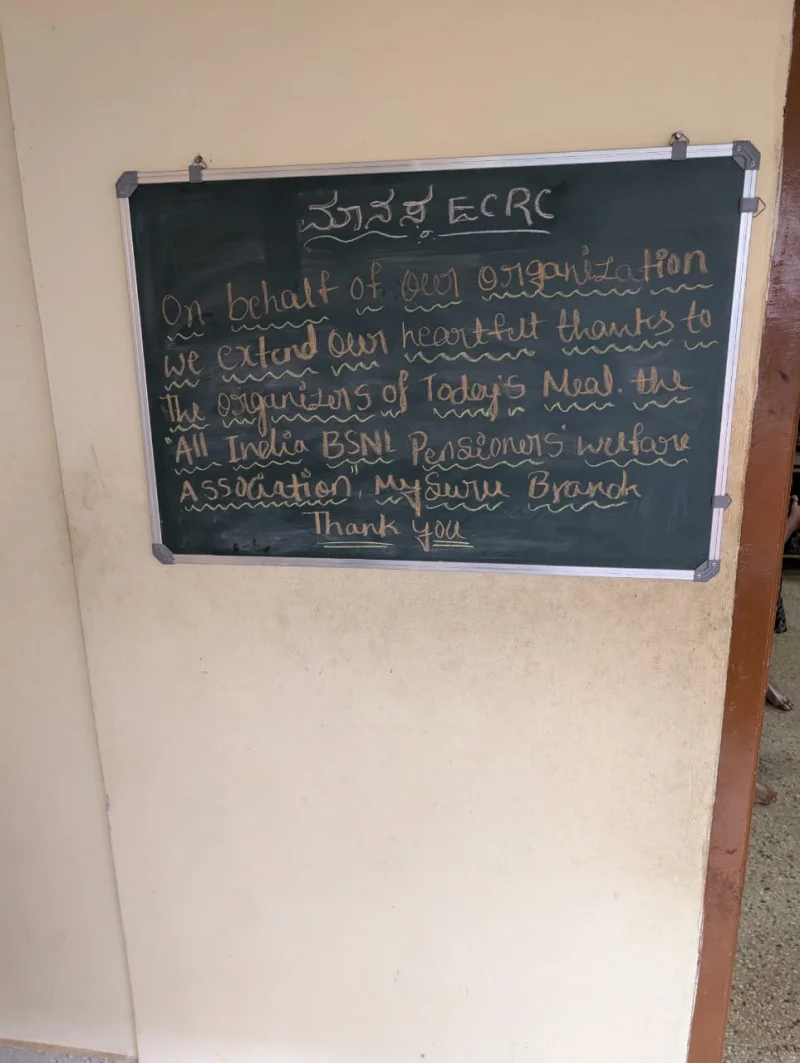 ಮಾನಸ ECRC
On behalf of our organization
we extend our heartfelt thanks to
the organizers of Today's Meal. the
"All India BSNL Pensioners' welfare
Association", Mysuru Branch
Thank you